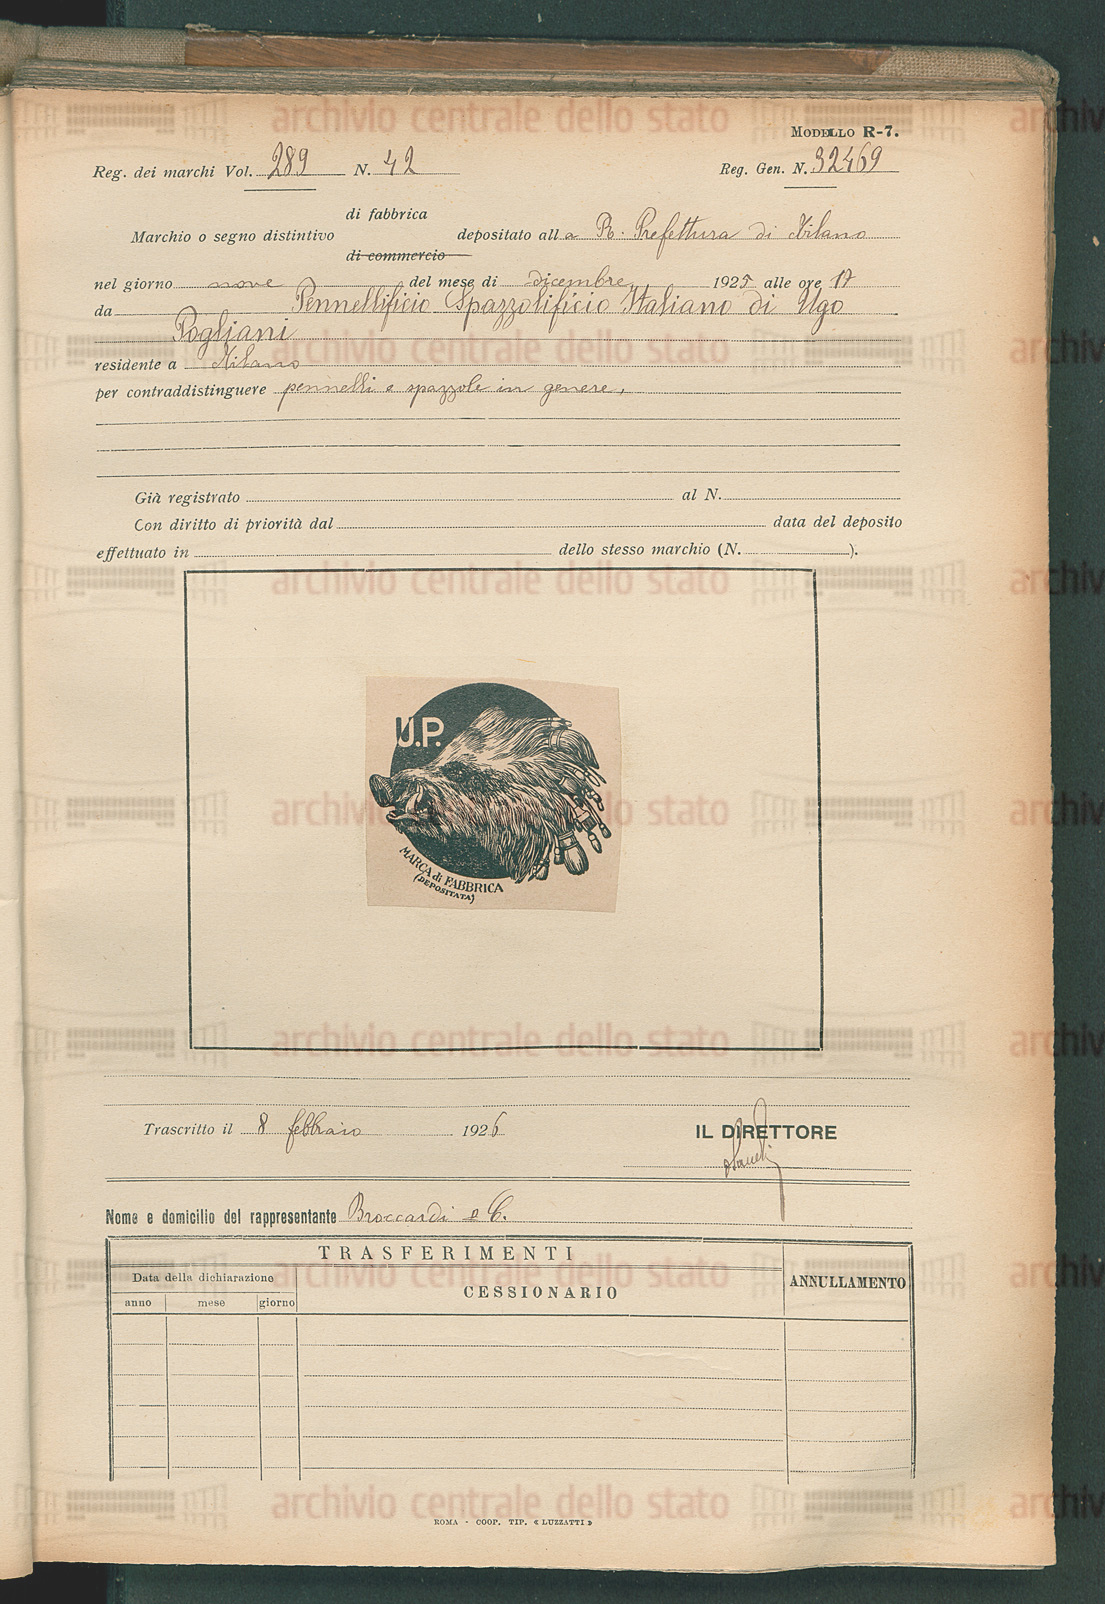 MODELLO R-7.
Reg. dei marchi Vol. 289 N. 42 Reg. Gen. N. 32469
di fabbrica
Marchio o segno distintivo depositato alla R. Prefettura di Milano
di commercio
nel giorno nove del mese di dicembre 1925 alle ore 17
da Pennellificio Spazzolificio Italiano di Ugo
Pogliani
residente a Milano
per contraddistinguere pennelli e spazzole in genere,
Già registrato al N.
Con diritto di priorità dal data del deposito
effettuato in dello stesso marchio (N. ).
U.P.
MARCA di FABBRICA
(DEPOSITATA)
Trascritto il 8 febbraio 1926 IL DIRETTORE
Nome e domicilio del rappresentante Broccardi e C.
TRASFERIMENTI
Data della dichiarazione CESSIONARIO ANNULLAMENTO
anno mese giorno
ROMA - COOP. TIP. « LUZZATTI »
archivio centrale dello stato